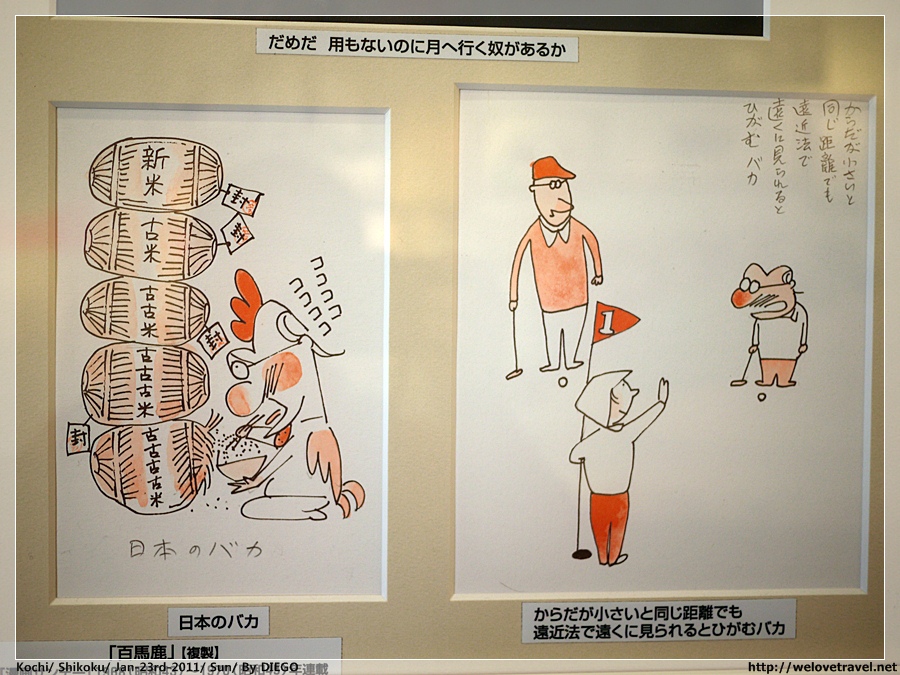 だめだ 用もないのに月へ行く奴があるか
新米
封
封
古米
古古米
封
古古古米
封
古古古古米
日本のバカ
からだが小さいと
同じ距離でも
遠近法で
遠くに見られると
ひがむ バカ
1
日本のバカ
からだが小さいと同じ距離でも
遠近法で遠くに見られるとひがむバカ
「百馬鹿」【複製】
Kochi/ Shikoku/ Jan-23rd-2011/ Sun/ By DIEGO
http://welovetravel.net